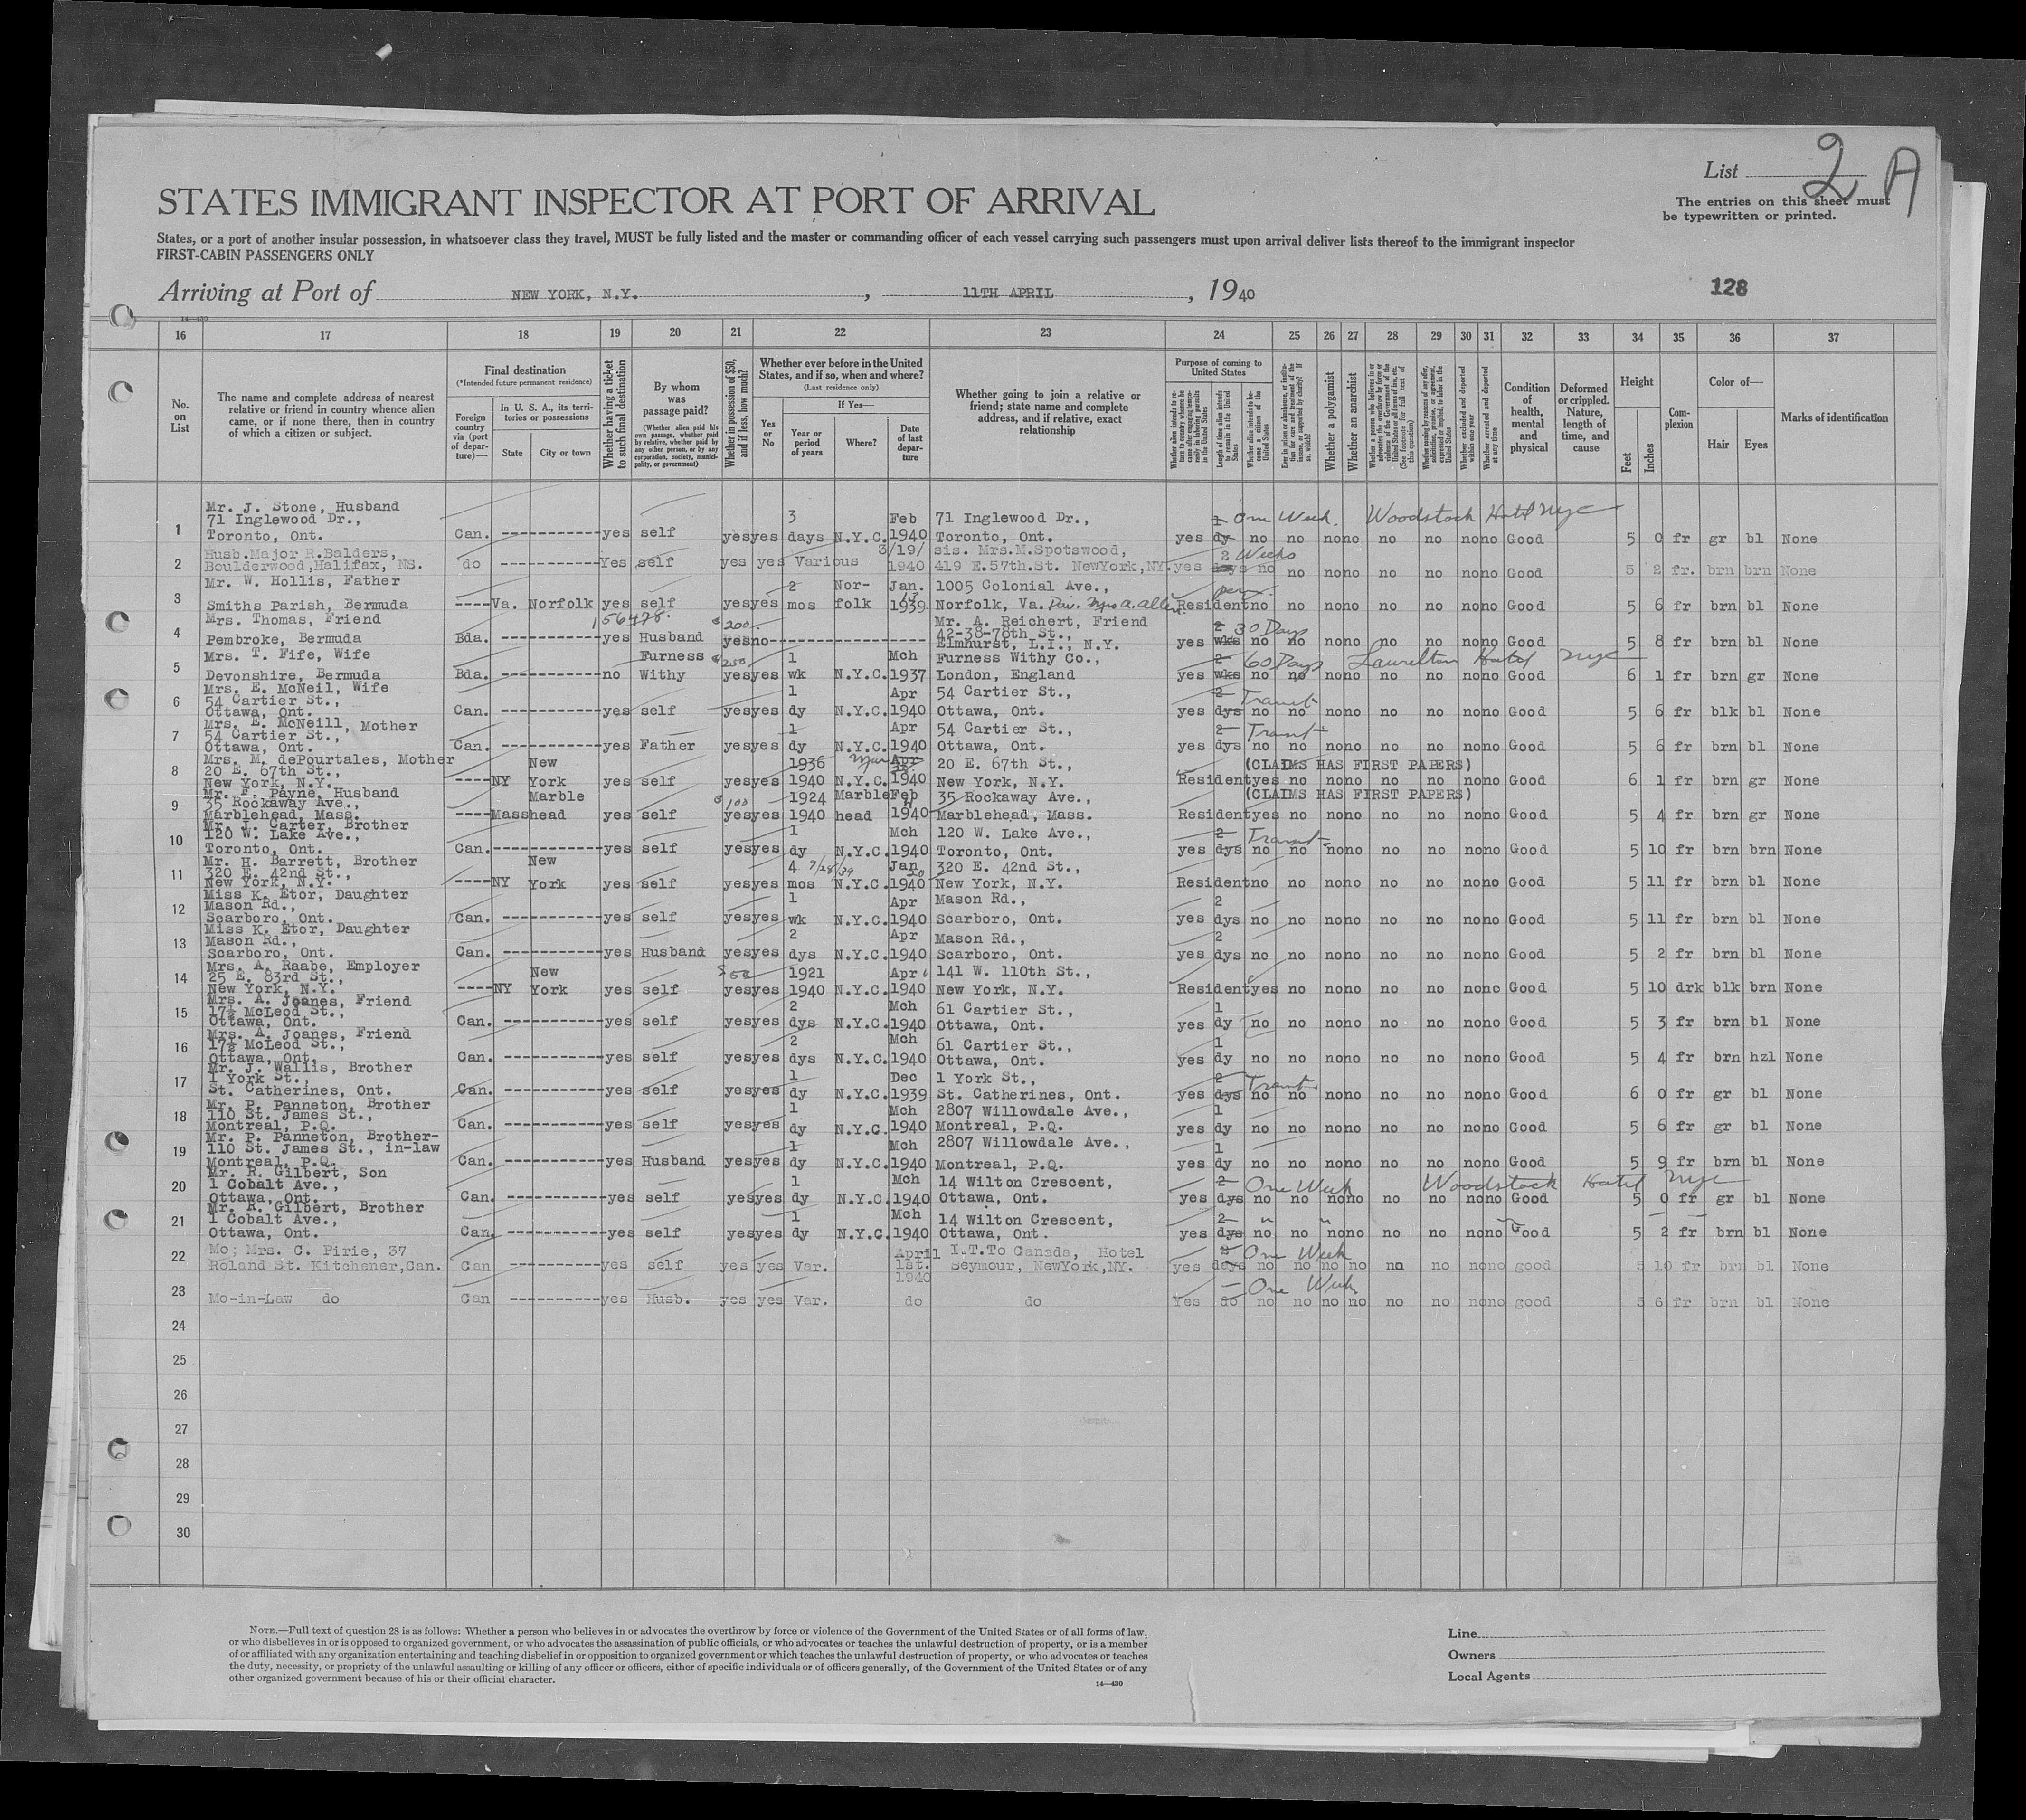 List 2 A
The entries on this sheet must
be typewritten or printed.
STATES IMMIGRANT INSPECTOR AT PORT OF ARRIVAL
States, or a port of another insular possession, in whatsoever class they travel, MUST be fully listed and the master or commanding officer of each vessel carrying such passengers must upon arrival deliver lists thereof to the immigrant inspector
FIRST-CABIN PASSENGERS ONLY
Arriving at Port of NEW YORK, N.Y., 11TH APRIL, 1940
128
16 17 18 19 20 21 22 23 24 25 26 27 28 29 30 31 32 33 34 35 36 37
No. on List
The name and complete address of nearest relative or friend in country whence alien came, or if none there, then in country of which a citizen or subject.
Final destination
(*Intended future permanent residence)
Foreign country via (port of departure)—
In U. S. A., its territories or possessions
State
City or town
Whether having a ticket to such final destination
By whom was passage paid?
(Whether alien paid his own passage, whether paid by relative, whether paid by any other person, or by any corporation, society, municipality, or government)
Whether in possession of $50, and if less, how much?
Whether ever before in the United States, and if so, when and where?
(Last residence only)
Yes or No
If Yes—
Year or period of years
Where?
Date of last departure
Whether going to join a relative or friend; state name and complete address, and if relative, exact relationship
Purpose of coming to United States
Length of time alien intends to remain in the United States
Whether alien intends to become a citizen of the United States
Whether a polygamist
Whether an anarchist
Whether excluded and deported within one year
Whether arrested and deported at any time
Condition of health, mental and physical
Deformed or crippled. Nature, length of time, and cause
Height
Feet
Inches
Complexion
Color of—
Hair
Eyes
Marks of identification
Mr. J. Stone, Husband 3 Feb 71 Inglewood Dr., 1 One Week. Woodstock Hotel NYC
71 Inglewood Dr.,
1 Toronto, Ont. Can. ----------- yes self yes yes days N.Y.C. 1940 Toronto, Ont. yes dy no no no no no no no no Good 5 0 fr gr bl None
Husb.Major R.Balders, 3/19/ sis. Mrs.M.Spotswood, 2 Weeks
2 Boulderwood,Halifax, NS. do ----------- Yes self yes yes Various 1940 419 E.57th.St. NewYork,NY. yes days no no no no no no no no Good 5 2 fr. brn brn None
Mr. W. Hollis, Father 2 Nor- Jan. 1005 Colonial Ave.,
3 Smiths Parish, Bermuda ---- Va. Norfolk yes self yes yes mos folk 1939 Norfolk, Va. Resident no no no no no no no no Good 5 6 fr brn bl None
Mrs. Thomas, Friend 156478. $200. Mr. A. Reichert, Friend 2 30 Days
42-38-78th St.,
4 Pembroke, Bermuda Bda. ----------- yes Husband yes no ----------- Elmhurst, L.I., N.Y. yes wks no no no no no no no no Good 5 8 fr brn bl None
Mrs. T. Fife, Wife Furness $250 1 Mch Furness Withy Co., 2 60 Days Laurelton Hotel NYC
5 Devonshire, Bermuda Bda. ----------- no Withy yes yes wk N.Y.C. 1937 London, England yes wks no no no no no no no no Good 6 1 fr brn gr None
Mrs. E. McNeil, Wife 1 Apr 54 Cartier St., 2 Transit
54 Cartier St.,
6 Ottawa, Ont. Can. ----------- yes self yes yes dy N.Y.C. 1940 Ottawa, Ont. yes dys no no no no no no no no Good 5 6 fr blk bl None
Mrs. E. McNeill, Mother 1 Apr 54 Cartier St., 2 Transit
54 Cartier St.,
7 Ottawa, Ont. Can. ----------- yes Father yes yes dy N.Y.C. 1940 Ottawa, Ont. yes dys no no no no no no no no Good 5 6 fr brn bl None
Mrs. M. dePourtales, Mother New 1936 Mar Apr 20 E. 67th St., (CLAIMS HAS FIRST PAPERS)
20 E. 67th St.,
8 New York, N.Y. ---- NY York yes self yes yes 1940 N.Y.C. 1940 New York, N.Y. Resident yes no no no no no no no Good 6 1 fr brn gr None
Mr. F. Payne, Husband Marble $100 1924 Marble Feb 35 Rockaway Ave., (CLAIMS HAS FIRST PAPERS)
35 Rockaway Ave.,
9 Marblehead, Mass. ---- Mass head yes self yes yes 1940 head 1940 Marblehead, Mass. Resident yes no no no no no no no Good 5 4 fr brn gr None
Mr. J. Carter, Brother 1 Mch 120 W. Lake Ave., 2 Transit
120 W. Lake Ave.,
10 Toronto, Ont. Can. ----------- yes self yes yes dy N.Y.C. 1940 Toronto, Ont. yes dys no no no no no no no no Good 5 10 fr brn brn None
Mr. H. Barrett, Brother New 4 7/28/39 Jan 320 E. 42nd St.,
320 E. 42nd St.,
11 New York, N.Y. ---- NY York yes self yes yes mos N.Y.C. 1940 New York, N.Y. Resident no no no no no no no no Good 5 11 fr brn bl None
Miss K. Etor, Daughter 1 Apr Mason Rd., 2
Mason Rd.,
12 Scarboro, Ont. Can. ----------- yes self yes yes wk N.Y.C. 1940 Scarboro, Ont. yes dys no no no no no no no no Good 5 11 fr brn bl None
Miss K. Etor, Daughter 2 Apr Mason Rd., 2
Mason Rd.,
13 Scarboro, Ont. Can. ----------- yes Husband yes yes dys N.Y.C. 1940 Scarboro, Ont. yes dys no no no no no no no no Good 5 2 fr brn bl None
Mrs. A. Raabe, Employer New $50 1921 Apr 141 W. 110th St.,
25 E. 83rd St.,
14 New York, N.Y. ---- NY York yes self yes yes 1940 N.Y.C. 1940 New York, N.Y. Resident yes no no no no no no no Good 5 10 drk blk brn None
Mrs. A. Joanes, Friend 2 Mch 61 Cartier St., 1
17½ McLeod St.,
15 Ottawa, Ont. Can. ----------- yes self yes yes dys N.Y.C. 1940 Ottawa, Ont. yes dy no no no no no no no no Good 5 3 fr brn bl None
Mrs. A. Joanes, Friend 2 Mch 61 Cartier St., 1
17½ McLeod St.,
16 Ottawa, Ont. Can. ----------- yes self yes yes dys N.Y.C. 1940 Ottawa, Ont. yes dy no no no no no no no no Good 5 4 fr brn hzl None
Mr. J. Wallis, Brother 1 Dec 1 York St., 2 Transit
1 York St.,
17 St. Catherines, Ont. Can. ----------- yes self yes yes dy N.Y.C. 1939 St. Catherines, Ont. yes dys no no no no no no no no Good 6 0 fr gr bl None
Mr. P. Panneton, Brother 1 Mch 2807 Willowdale Ave., 1
110 St. James St.,
18 Montreal, P.Q. Can. ----------- yes self yes yes dy N.Y.C. 1940 Montreal, P.Q. yes dy no no no no no no no no Good 5 6 fr gr bl None
Mr. P. Panneton, Brother- 1 Mch 2807 Willowdale Ave., 1
110 St. James St., in-law
19 Montreal, P.Q. Can. ----------- yes Husband yes yes dy N.Y.C. 1940 Montreal, P.Q. yes dy no no no no no no no no Good 5 9 fr brn bl None
Mr. R. Gilbert, Son 1 Mch 14 Wilton Crescent, 2 One Week Woodstock Hotel NYC
1 Cobalt Ave.,
20 Ottawa, Ont. Can. ----------- yes self yes yes dy N.Y.C. 1940 Ottawa, Ont. yes dys no no no no no no no no Good 5 0 fr gr bl None
Mr. R. Gilbert, Brother 1 Mch 14 Wilton Crescent, 2 " "
1 Cobalt Ave.,
21 Ottawa, Ont. Can. ----------- yes self yes yes dy N.Y.C. 1940 Ottawa, Ont. yes dys no no no no no no no no Good 5 2 fr brn bl None
22 Mo; Mrs. C. Pirie, 37 April I.T.To Canada, Hotel One Week
Roland St. Kitchener,Can. Can ----------- yes self yes yes Var. 1st. Seymour, NewYork,NY. yes days no no no no na no no no good 5 10 fr brn bl None
1940
23 Mo-in-Law do Can ----------- yes Husb. yes yes Var. do do Yes do One Week no no no no no no no no good 5 6 fr brn bl None
24
25
26
27
28
29
30
NOTE.—Full text of question 28 is as follows: Whether a person who believes in or advocates the overthrow by force or violence of the Government of the United States or of all forms of law,
or who disbelieves in or is opposed to organized government, or who advocates the assassination of public officials, or who advocates or teaches the unlawful destruction of property, or is a member
of or affiliated with any organization entertaining and teaching disbelief in or opposition to organized government or which teaches the unlawful destruction of property, or who advocates or teaches
the duty, necessity, or propriety of the unlawful assaulting or killing of any officer or officers, either of specific individuals or of officers generally, of the Government of the United States or of any
other organized government because of his or their official character.
14—430
Line
Owners
Local Agents